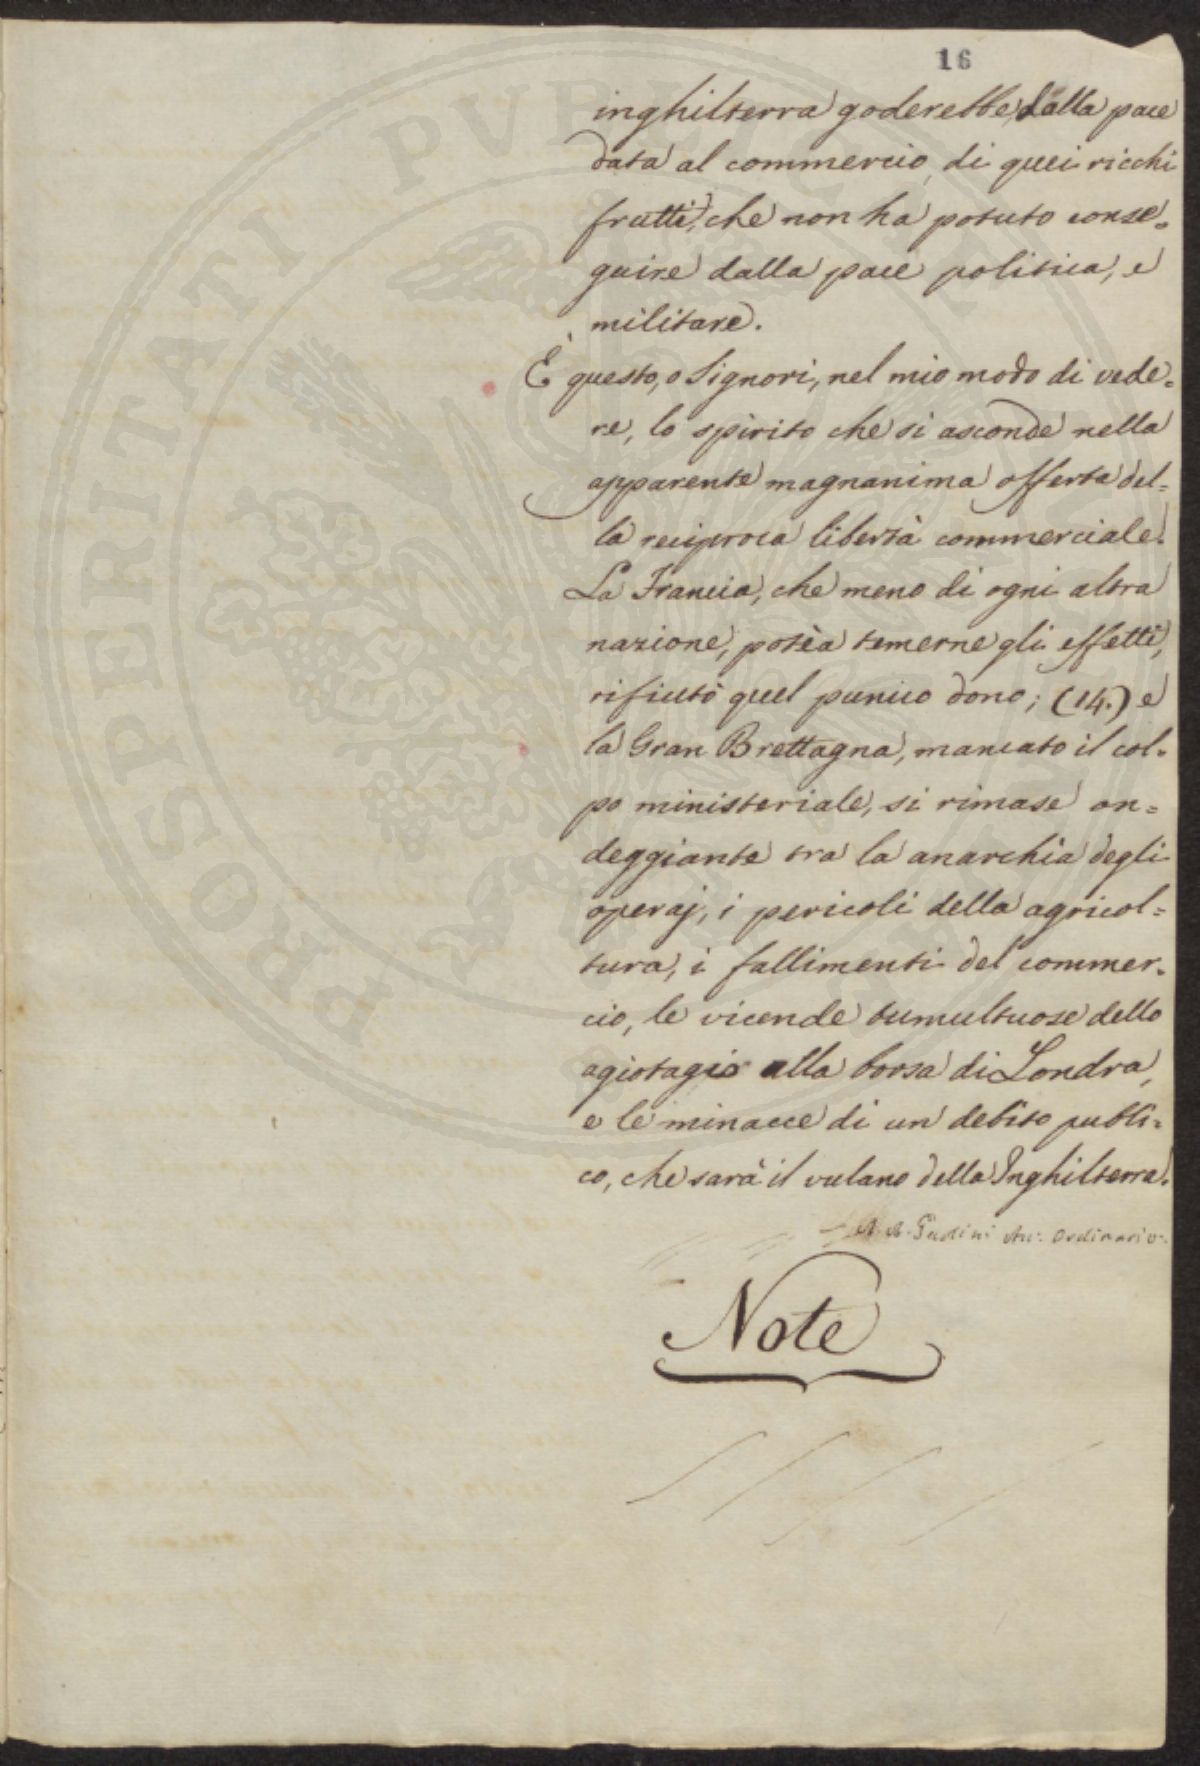 16
inghilterra goderebbe, dalla pace
data al commercio, di quei ricchi
frutti, che non ha potuto conse=
guire dalla pace politica, e
militare.
È questo, o Signori, nel mio modo di vede=
re, lo spirito che si asconde nella
apparente magnanima offerta del=
la reciproca libertà commerciale.
La Francia, che meno di ogni altra
nazione, potèa temerne gli effetti,
rifiutò quel punico dono; (14.) e
la Gran Brettagna, mancato il col=
po ministeriale, si rimase on=
deggiante tra la anarchia degli
operaj, i pericoli della agricol=
tura, i fallimenti del commer=
cio, le vicende tumultuose dello
agiotagio alla borsa di Londra,
e le minacce di un debito publi=
co, che sarà il vulcano della Inghilterra.
Ordinario
Note
PROSPERITATI PVBLICAE